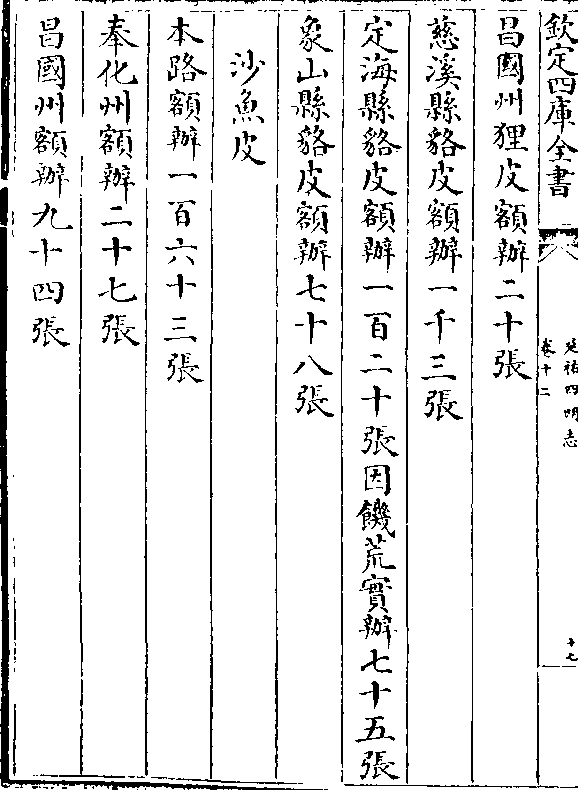 欽定四庫全書
延祐四明志
卷十二
十七
昌國州狸皮額辦二十張
慈溪縣貉皮額辦一千三張
定海縣貉皮額辦一百二十張因饑荒實辦七十五張
象山縣貉皮額辦七十八張
沙魚皮
本路額辦一百六十三張
奉化州額辦二十七張
昌國州額辦九十四張